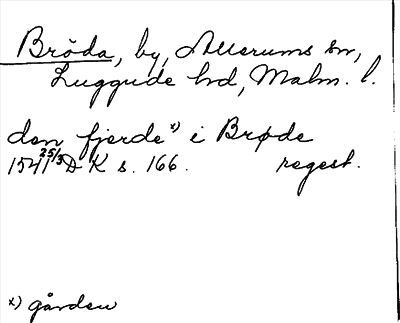 Bröda, by, Allerums sn,
Luggude hd, Malm. l.
den fjerde x) i Brøde
1541 25/3 DK s. 166. regest.
x) gården